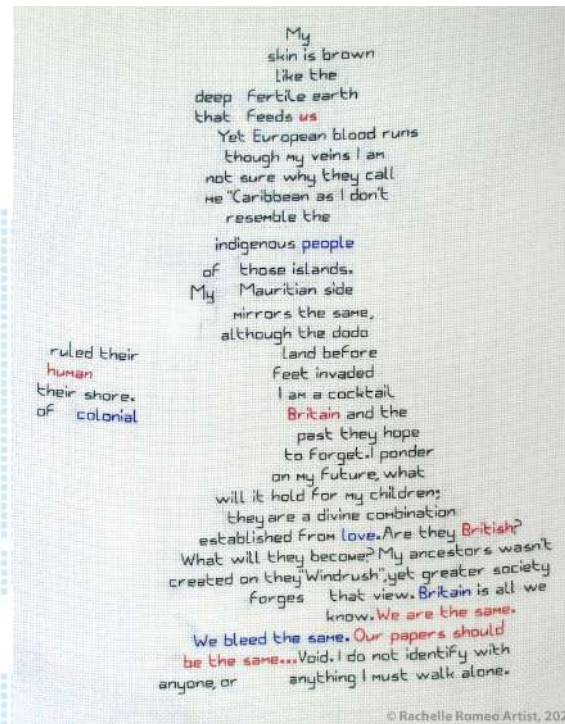 My
skin is brown
like the
deep fertile earth
that feeds us
Yet European blood runs
though my veins I am
not sure why they call
me "Caribbean as I don't
resemble the
indigenous people
of those islands.
My Mauritian side
mirrors the same,
although the dodo
ruled their land before
human feet invaded
their shore. I am a cocktail
of colonial Britain and the
past they hope
to forget. I ponder
on my future, what
will it hold for my children;
they are a divine combination
established from love. Are they British?
What will they become? My ancestors wasn't
created on they "Windrush", yet greater society
forges that view. Britain is all we
know. We are the same.
We bleed the same. Our papers should
be the same... Void. I do not identify with
anyone, or anything I must walk alone.
© Rachelle Romeo Artist, 202